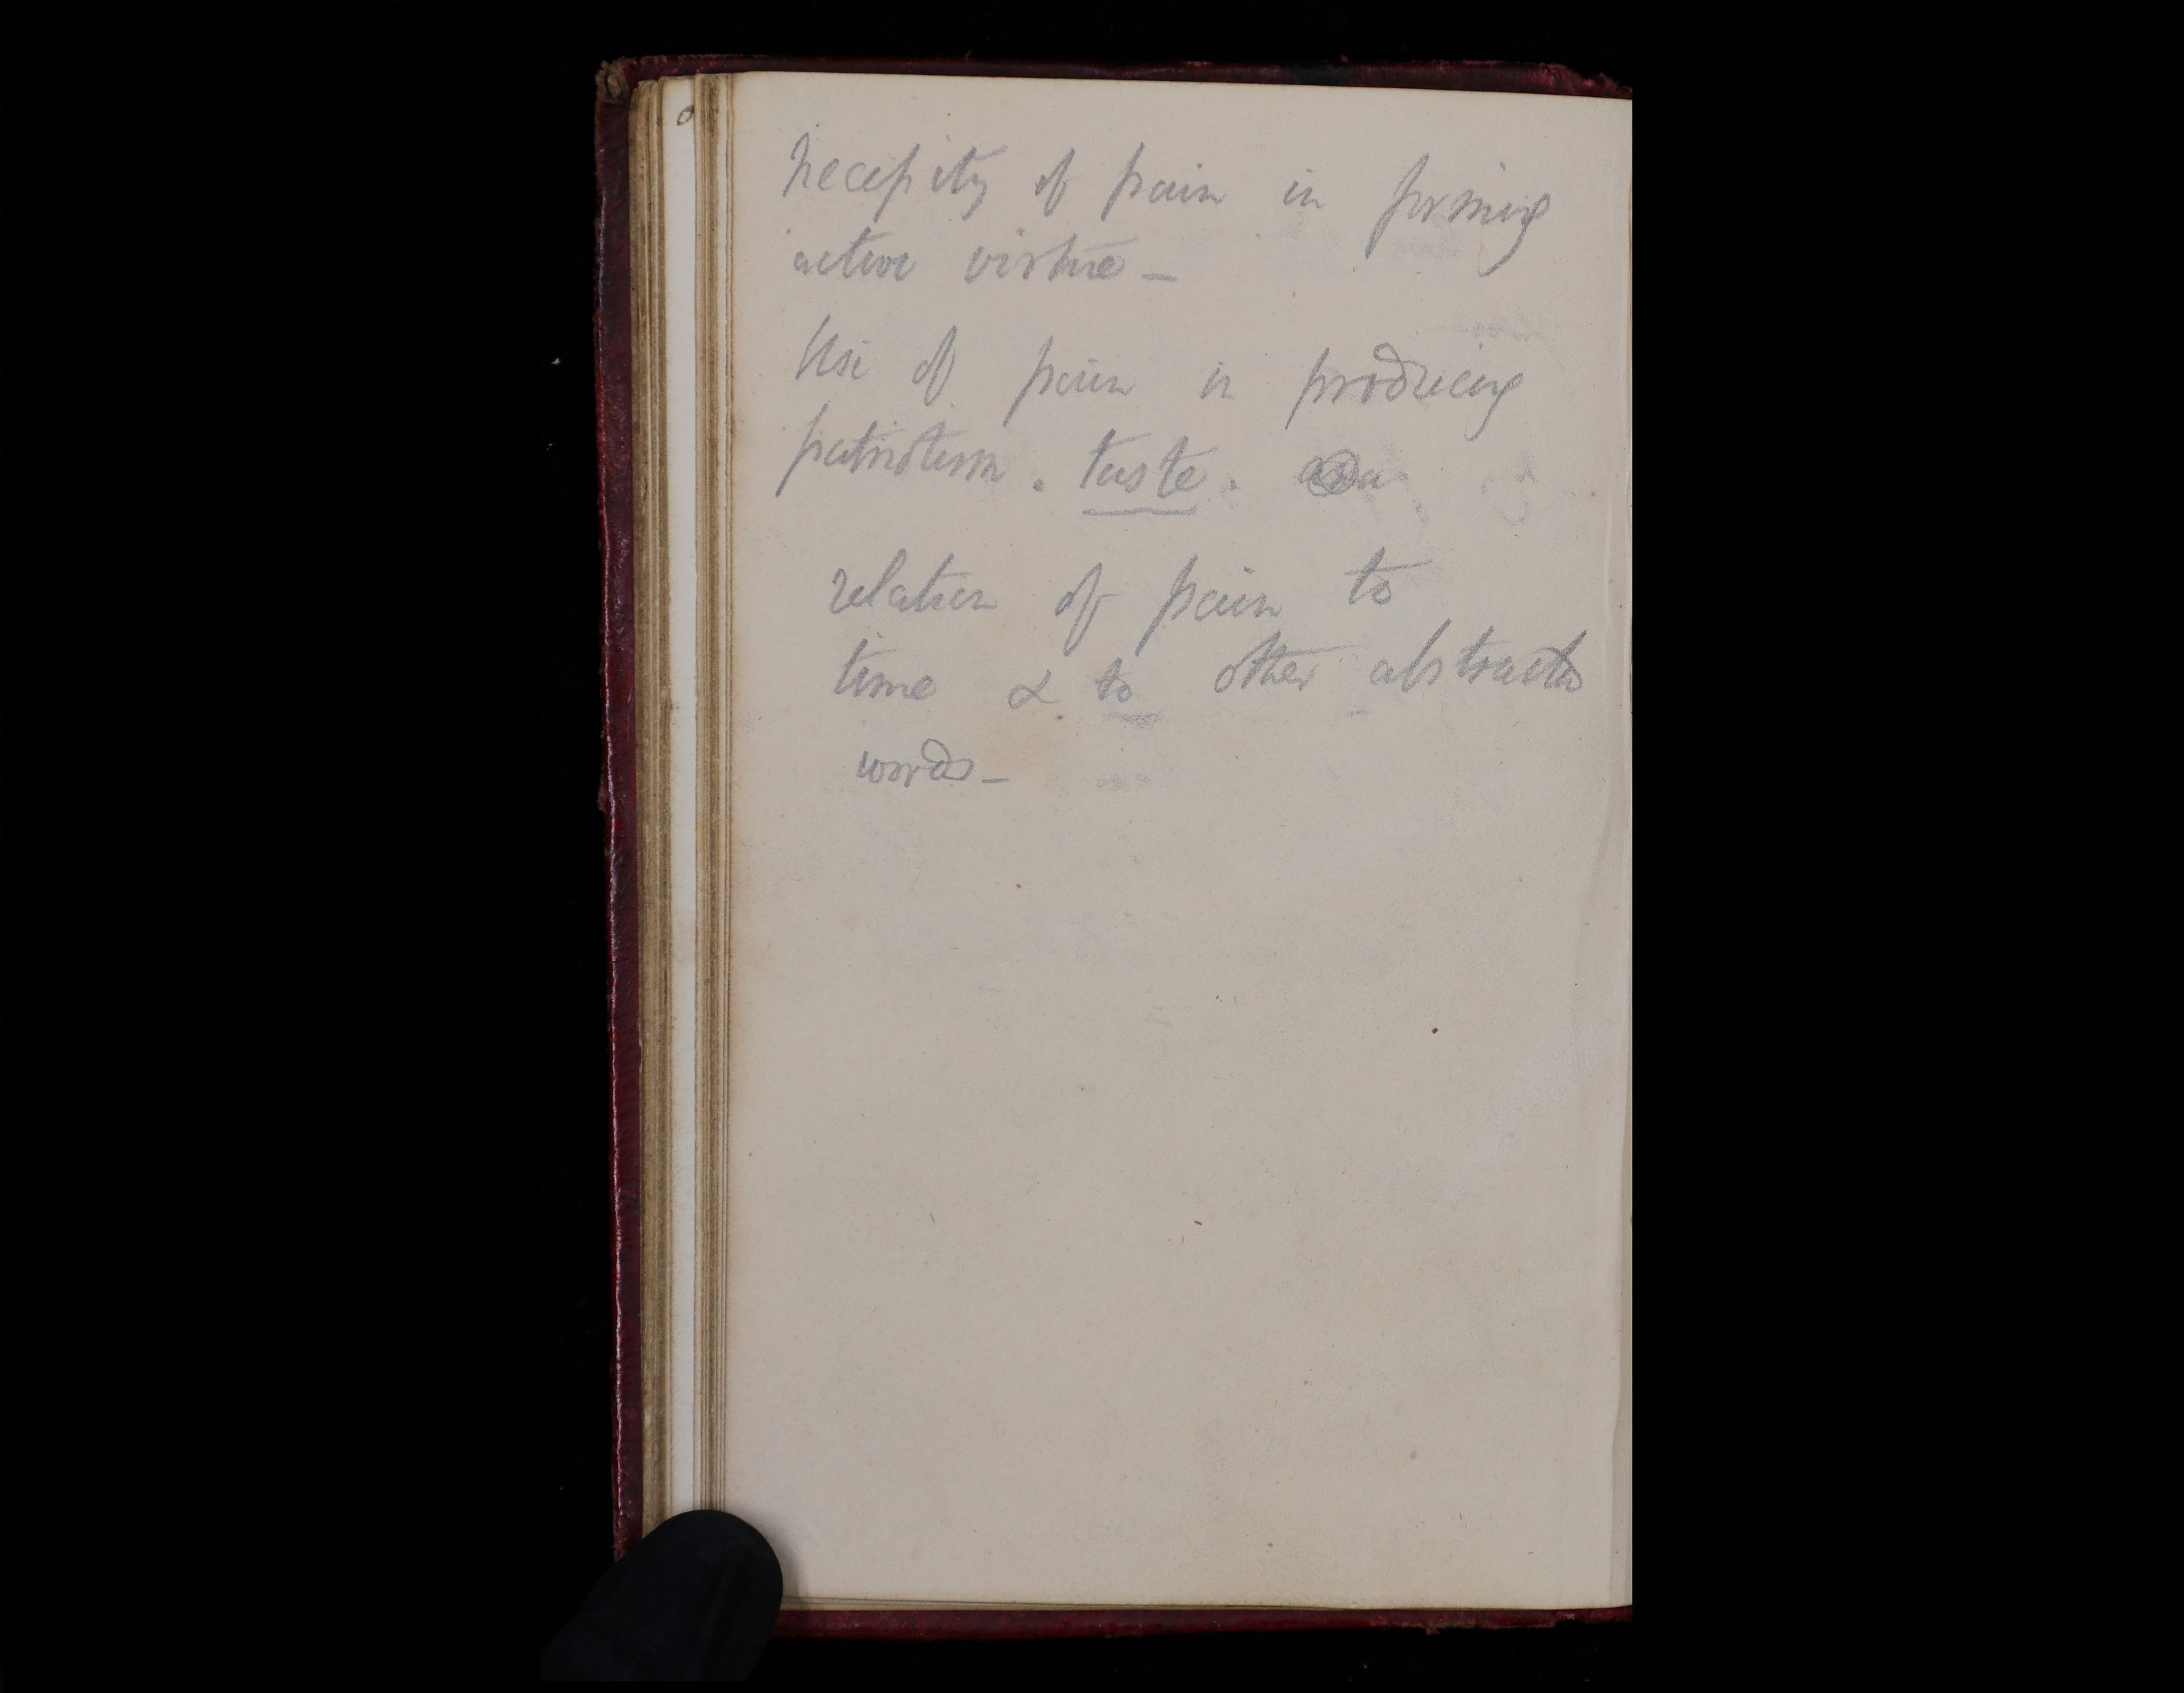 Necessity of pain in forming
active virtue –
Use of pain in producing
patriotism . taste .
relation of pain to
time & to other abstract
words –